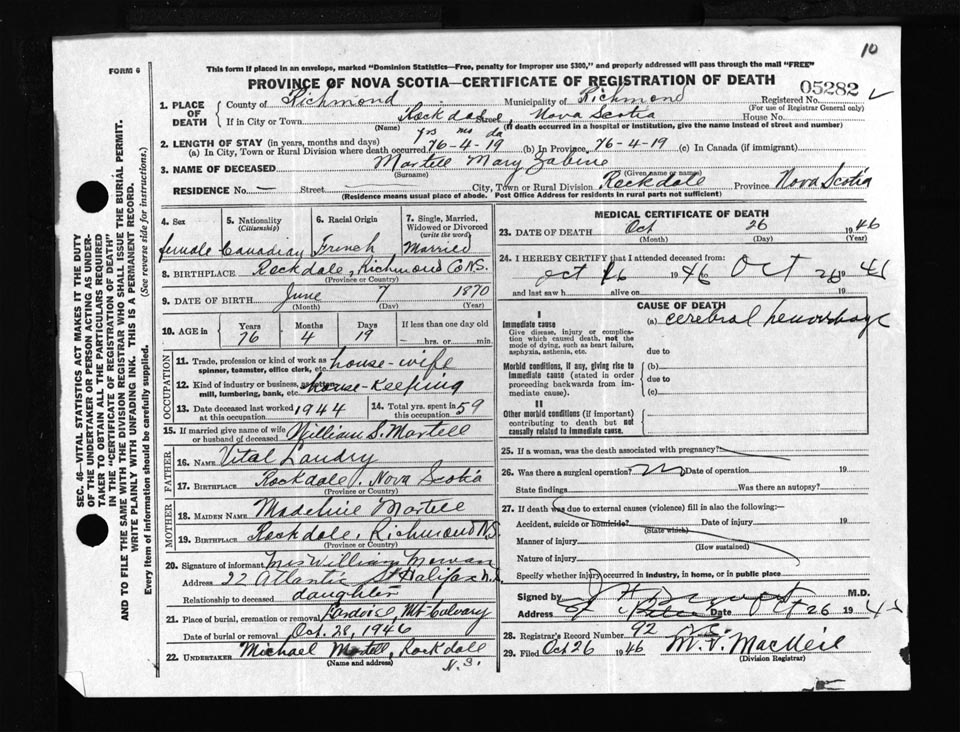 10
FORM 6
This form if placed in an envelope, marked "Dominion Statistics—Free, penalty for improper use $300," and properly addressed will pass through the mail "FREE"
PROVINCE OF NOVA SCOTIA—CERTIFICATE OF REGISTRATION OF DEATH
05282
1. PLACE OF DEATH
County of Richmond Municipality of Richmond Registered No.
(For use of Registrar General only)
If in City or Town Rockdale Street, Nova Scotia House No.
(Name) (If death occurred in a hospital or institution, give the name instead of street and number)
yrs mo da
2. LENGTH OF STAY (in years, months and days)
(a) In City, Town or Rural Division where death occurred 76-4-19 (b) In Province 76-4-19 (c) In Canada (if immigrant)
3. NAME OF DECEASED Martell Mary Zabine
(Surname) (Given name or names)
RESIDENCE No. — Street — City, Town or Rural Division Rockdale Province Nova Scotia
(Residence means usual place of abode. Post Office Address for residents in rural parts not sufficient)
SEC. 46—VITAL STATISTICS ACT MAKES IT THE DUTY
OF THE UNDERTAKER OR PERSON ACTING AS UNDER-
TAKER TO OBTAIN ALL THE PARTICULARS REQUIRED
IN THE "CERTIFICATE OF REGISTRATION OF DEATH"
AND TO FILE THE SAME WITH THE DIVISION REGISTRAR WHO SHALL ISSUE THE BURIAL PERMIT.
WRITE PLAINLY WITH UNFADING INK. THIS IS A PERMANENT RECORD.
Every item of information should be carefully supplied. (See reverse side for instructions.)
4. Sex female
5. Nationality (Citizenship) Canadian
6. Racial Origin French
7. Single, Married, Widowed or Divorced (write the word) Married
8. BIRTHPLACE Rockdale, Richmond Co N.S.
(Province or Country)
9. DATE OF BIRTH June 7 1870
(Month) (Day) (Year)
10. AGE in Years Months Days If less than one day
76 4 19 hrs. or min.
OCCUPATION
11. Trade, profession or kind of work as spinner, teamster, office clerk, etc. house-wife
12. Kind of industry or business, as cotton mill, lumbering, bank, etc. house-keeping
13. Date deceased last worked at this occupation 1944
14. Total yrs. spent in this occupation 59
15. If married give name of wife or husband of deceased William S. Martell
FATHER
16. NAME Vital Landry
17. BIRTHPLACE Rockdale, Nova Scotia
(Province or Country)
MOTHER
18. MAIDEN NAME Madeline Martell
19. BIRTHPLACE Rockdale, Richmond N.S.
(Province or Country)
20. Signature of informant Mrs William
Address 22 Atlantic St Halifax N.S.
Relationship to deceased daughter
21. Place of burial, cremation or removal Mt Calvary
Date of burial or removal Oct. 28, 1946
22. UNDERTAKER Michael Martell, Rockdale
(Name and address) N.S.
MEDICAL CERTIFICATE OF DEATH
23. DATE OF DEATH Oct 26 1946
(Month) (Day) (Year)
24. I HEREBY CERTIFY that I attended deceased from:
Oct 1946 Oct 26 19
and last saw h alive on 19
CAUSE OF DEATH
I
Immediate cause (a) cerebral hemorrhage
Give disease, injury or complication which caused death, not the mode of dying, such as heart failure, asphyxia, asthenia, etc.
due to
Morbid conditions, if any, giving rise to immediate cause (stated in order proceeding backwards from immediate cause).
(b)
due to
(c)
II
Other morbid conditions (if important) contributing to death but not causally related to immediate cause.
25. If a woman, was the death associated with pregnancy?
26. Was there a surgical operation? no Date of operation 19
State findings Was there an autopsy?
27. If death was due to external causes (violence) fill in also the following:—
Accident, suicide or homicide? Date of injury 19
(State which)
Manner of injury
(How sustained)
Nature of injury
Specify whether injury occurred in industry, in home, or in public place
Signed by M.D.
Address St Peters Date Oct 26 19
28. Registrar's Record Number 92
29. Filed Oct 26 1946 MacNeil
(Division Registrar)